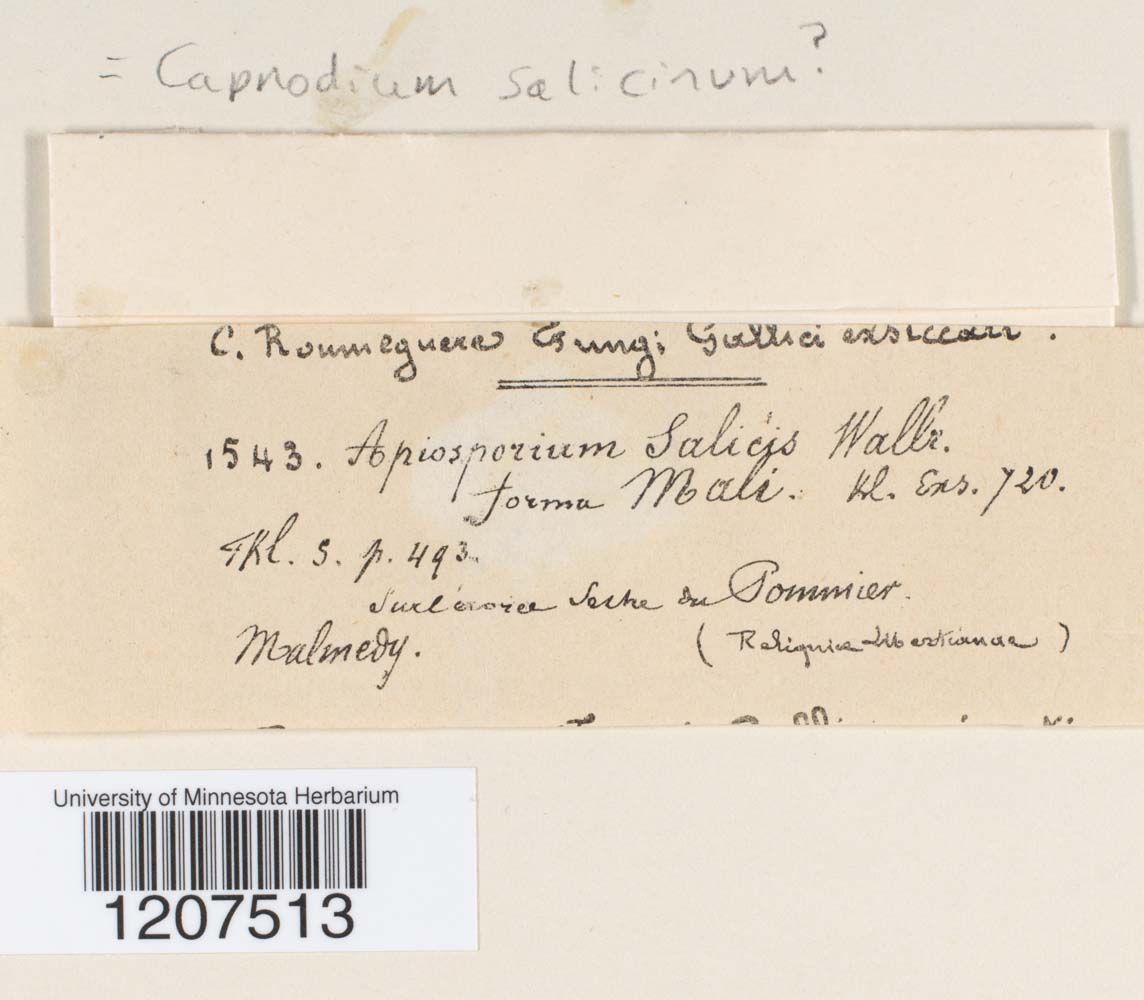 = Capnodium salicinum?
C. Roumeguere Fungi Gallici exsiccati.
1543. Apiosporium Salicis Wallr.
forma Mali. Kl. Exs. 720.
Fkl. S. p. 493.
Sur l'écorce seche du Pommier.
Malmedy. (Reliquiae Libertianae)
University of Minnesota Herbarium
1207513